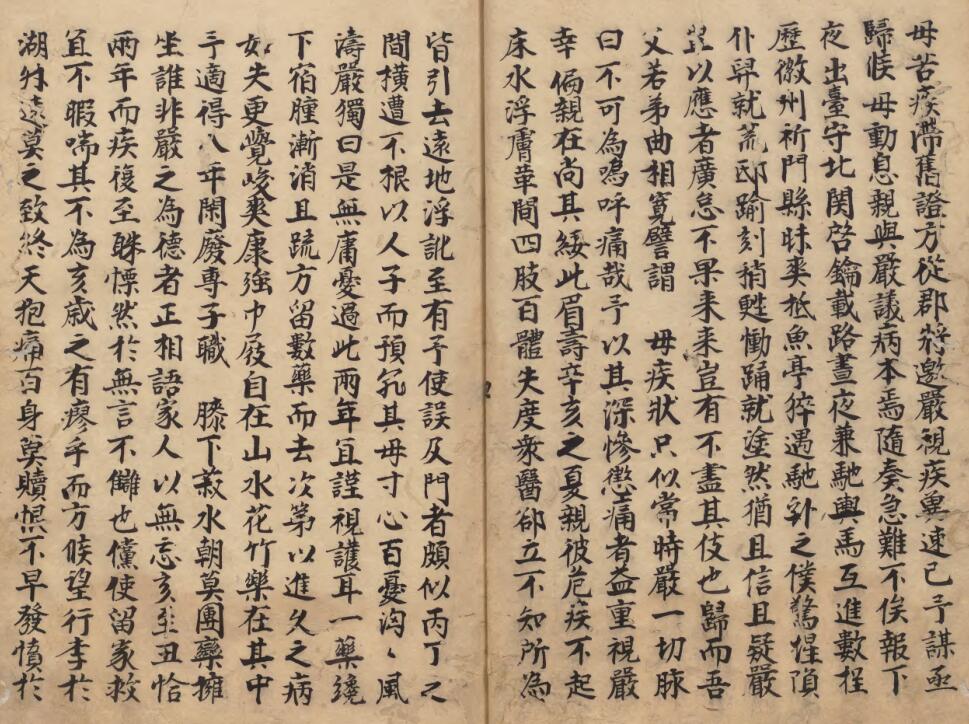 母苦痰滯舊證方從郡將邀嚴視疾兾速已予謀亟
歸候母動息親與嚴議病本焉隨奏急難不俟報下
夜出臺守北関啓鑰載路晝夜兼馳輿馬互進數程
歷徽州祈門縣昧爽抵魚亭猝遇馳訃之僕驚惶隕
仆舁就荒邸踰刻稍甦慟踊就塗然猶且信且疑嚴
豈以應者廣怠不果来来豈有不盡其伎也歸而吾
父若弟曲相寬譬謂 母疾狀只似常時嚴一切脉
曰不可為嗚呼痛哉予以其深慘懲痛者益重視嚴
幸偏親在尚其綏此眉壽辛亥之夏親彼危疾不起
床水浮膚革間四肢百體失度衆醫郤立不知所為
皆引去遠地浮訛至有予使誤及門者頗似丙丁之
間橫遭不根以人子而預㐫其母寸心百憂洶〻風
濤嚴獨曰是無庸憂過此兩年宜謹視護耳一藥纔
下宿腫漸消且䟽方留數藥而去次第以進久之病
如失更覺峻爽康強巾屐自在山水花竹樂在其中
予適得八年閑廢專子職 膝下菽水朝莫團欒擁
坐誰非嚴之為德者正相語家人以無忘亥至丑恰
兩年而疾復至眛慄然於無言不讎也儻使留家救
宜不暇喘其不為亥歲之有瘳乎而方睒望行李於
湖外遠莫之致終天抱痛百身莫贖悵不早發憤於